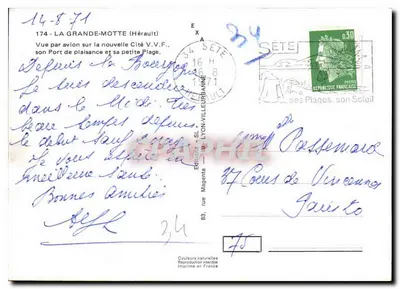 14-8-71
174 - LA GRANDE-MOTTE (Hérault)
Vue par avion sur la nouvelle Cité V.V.F.,
son Port de plaisance et sa petite Plage.
Depuis la Bourgogne
Je suis descendue
dans le Midi. Très
beau temps depuis
le début sauf
Je vous espère en
meilleure santé.
Bonnes amitiés
34
E X A
83, rue Magenta - LYON-VILLEURBANNE
34 SETE
16 H
8
1971
HERAULT
SETE
ses Plages, son Soleil
0,30
REPUBLIQUE FRANÇAISE
POSTES
Passemard
37 Cours de Vincennes
Paris
75
Couleurs naturelles
Reproduction interdite
Imprimé en France
delcampe